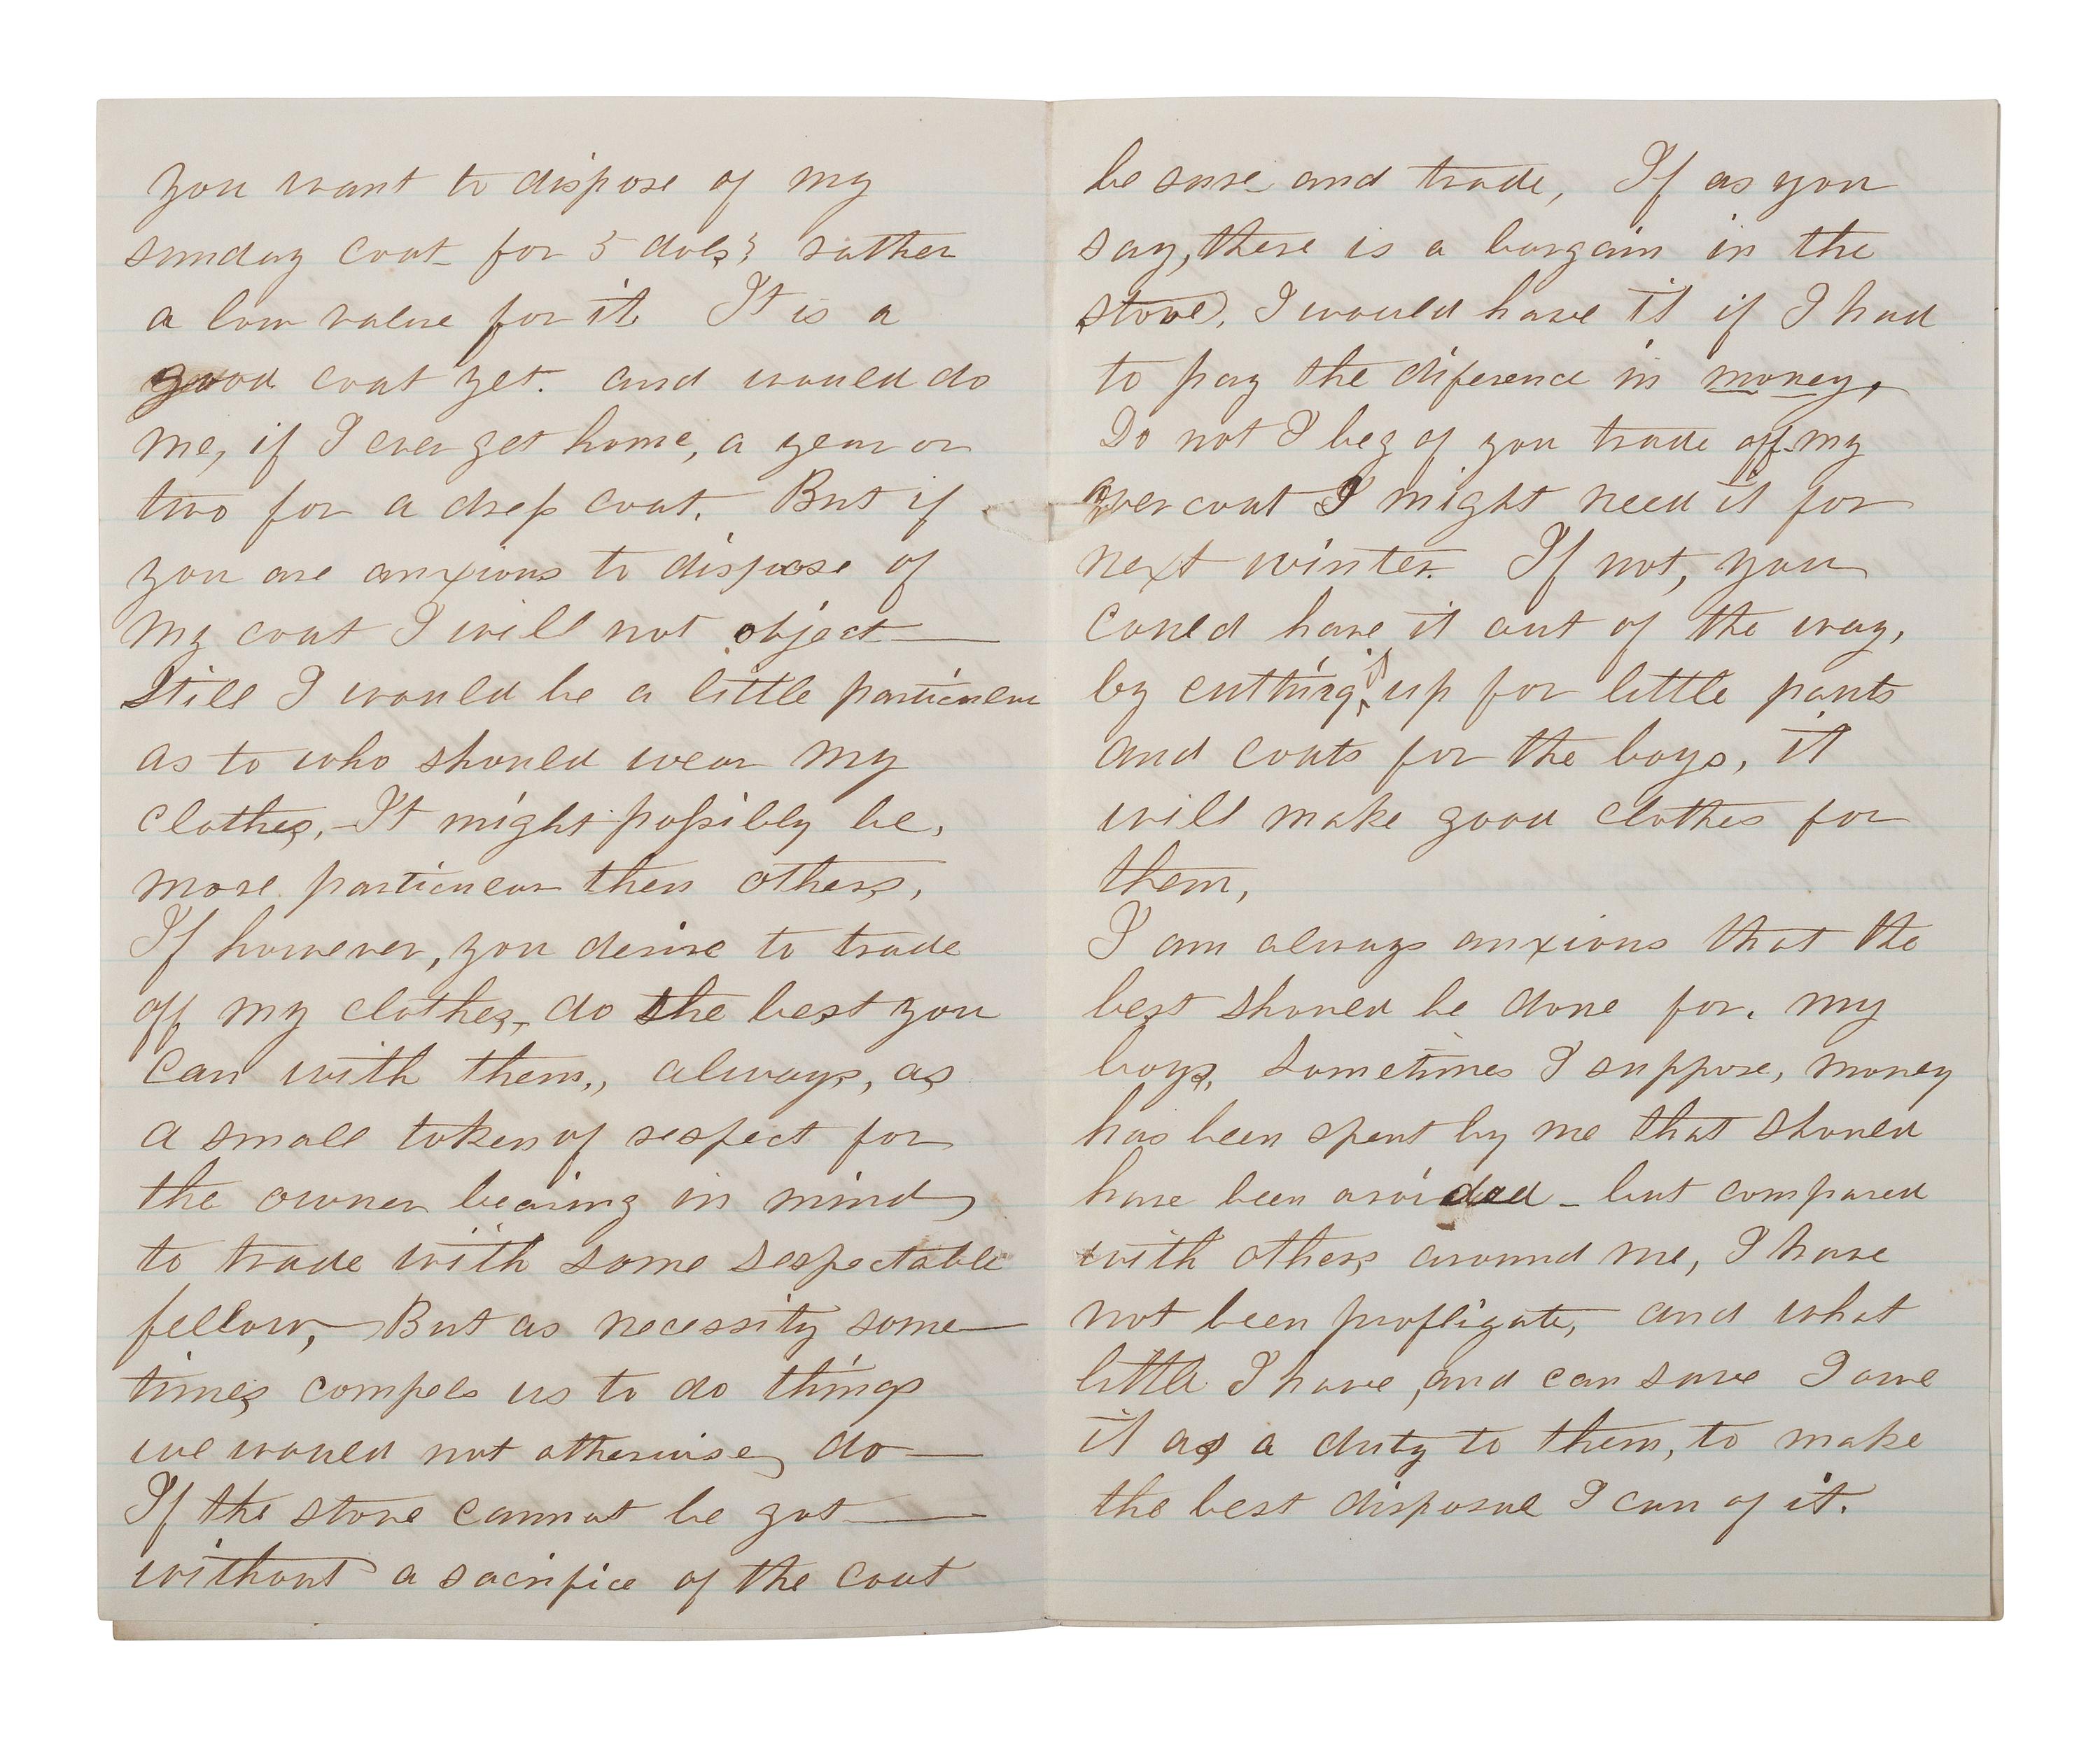 you want to dispose of my
sunday coat for 5 dols; rather
a low value for it It is a
good coat yet. and would do
me, if I ever get home, a year or
two for a dress coat. But if
you are anxious to dispose of
my coat I will not object—
Still I would be a little particular
as to who should wear my
clothes,—It might possibly be,
more particular then others,
If however, you desire to trade
off my clothes, do the best you
can with them., always, as
a small token of respect for
the owner bearing in mind
to trade with some respectable
fellow, But as necessity some—
times compels us to do things
we would not otherwise, do—
If the stove cannot be got—
without a sacrifice of the coat
be sure and trade, If as you
say, there is a bargain in the
stove, I would have it if I had
to pay the diference in money,
Do not I beg of you trade off my
overcoat I might need it for
next winter. If not, you
could have it out of the way,
by cutting it up for little pants
and coats for the boys, it
will make good clothes for
them,
I am always anxious that the
best should be done for. my
boys, Sometimes I suppose, money
has been spent by me that should
have been avoided - but compared
with others around me, I have
not been profligate, and what
little I have, and can save I owe
it as a duty to them, to make
the best disposal I can of it.